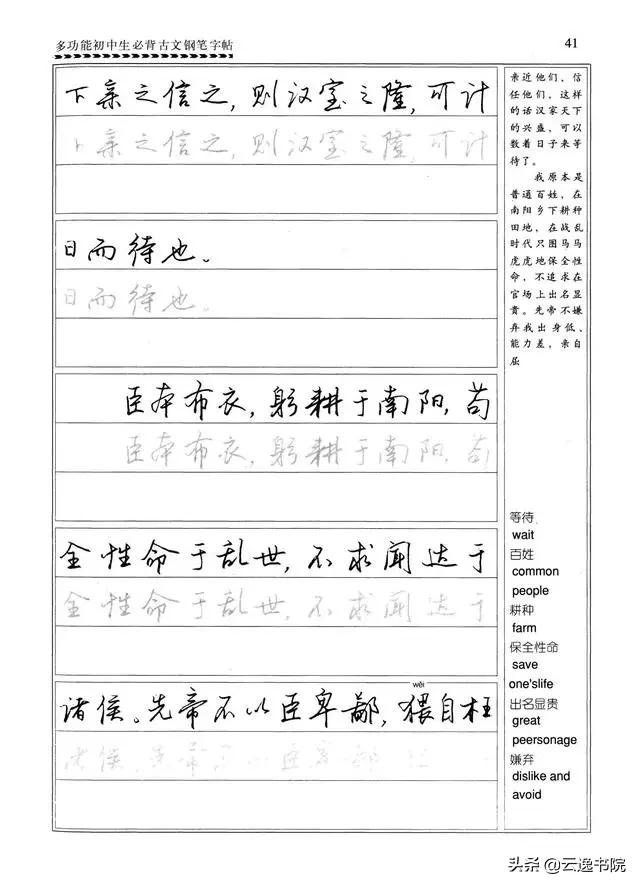 多功能初中生必背古文钢笔字帖
41
下亲之信之,则汉室之隆,可计
下亲之信之,则汉室之隆,可计
日而待也。
日而待也。
臣本布衣,躬耕于南阳,苟
臣本布衣,躬耕于南阳,苟
全性命于乱世,不求闻达于
全性命于乱世,不求闻达于
wěi
诸侯。先帝不以臣卑鄙,猥自枉
诸侯。先帝不以臣卑鄙
亲近他们,信
任他们,这样
的话汉家天下
的兴盛,可以
数着日子来等
待了。
我原本是
普通百姓,在
南阳乡下耕种
田地,在战乱
时代只图马马
虎虎地保全性
命,不追求在
官场上出名显
贵。先帝不嫌
弃我出身低、
能力差,亲自
屈
等待
wait
百姓
common
people
耕种
farm
保全性命
save
one'slife
出名显贵
great
peersonage
嫌弃
dislike and
avoid
头条 @云逸书院